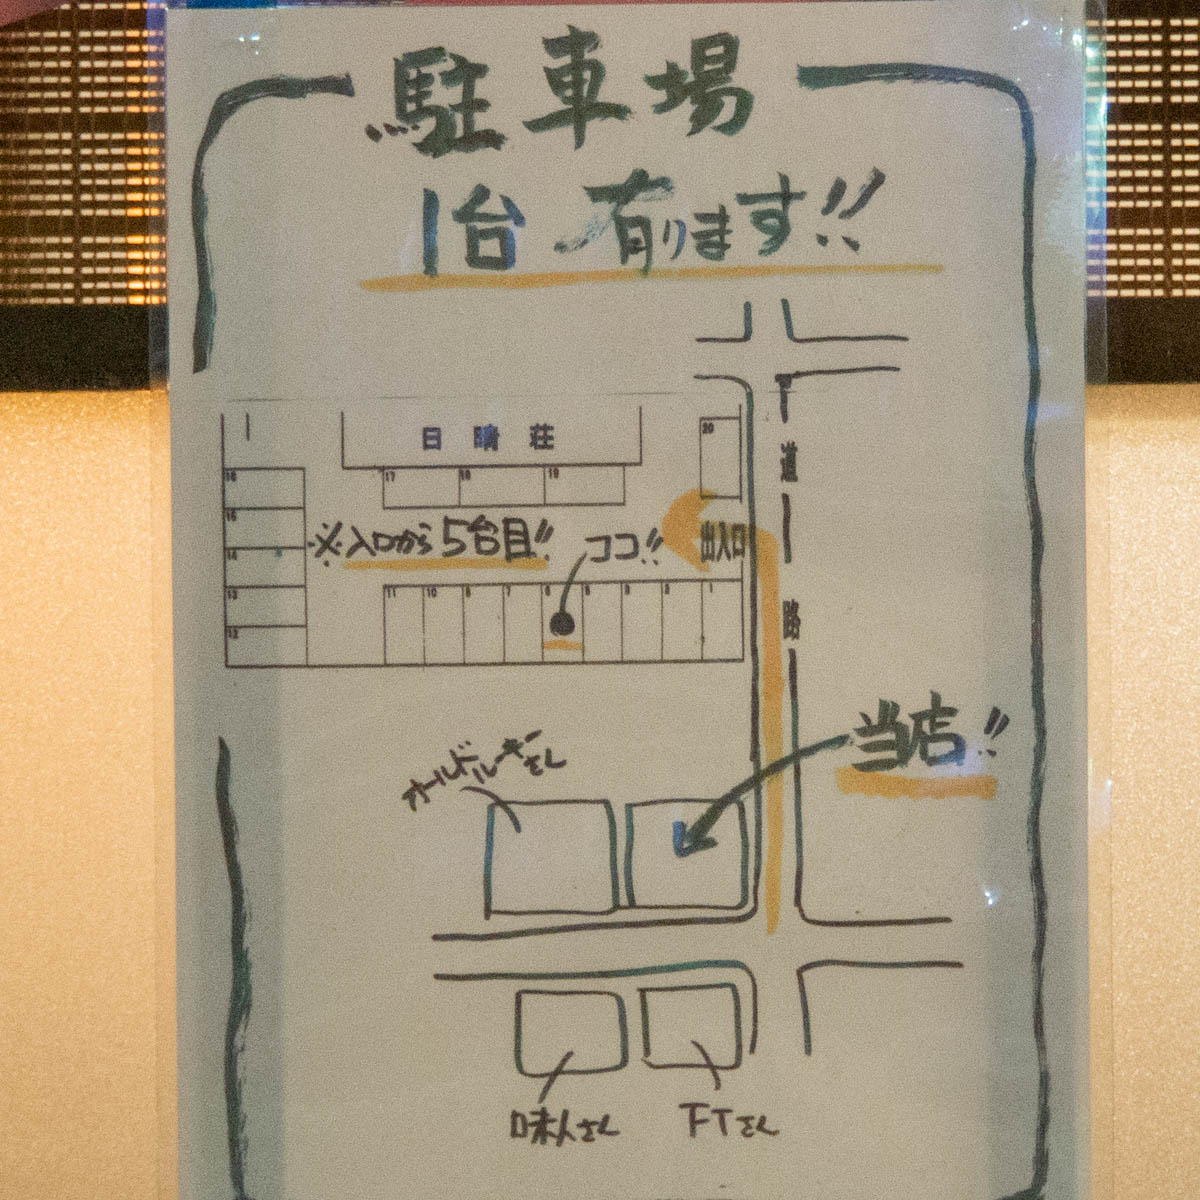 駐車場
1台 有ります!!
日晴荘
20
17 18 19
16
15
14
13
12
※入口から5台目!!
ココ!!
出入口
道路
11 10 8 7 6 5 3 2 1
当店!!
オールドルーキーさん
味人さん
FTさん